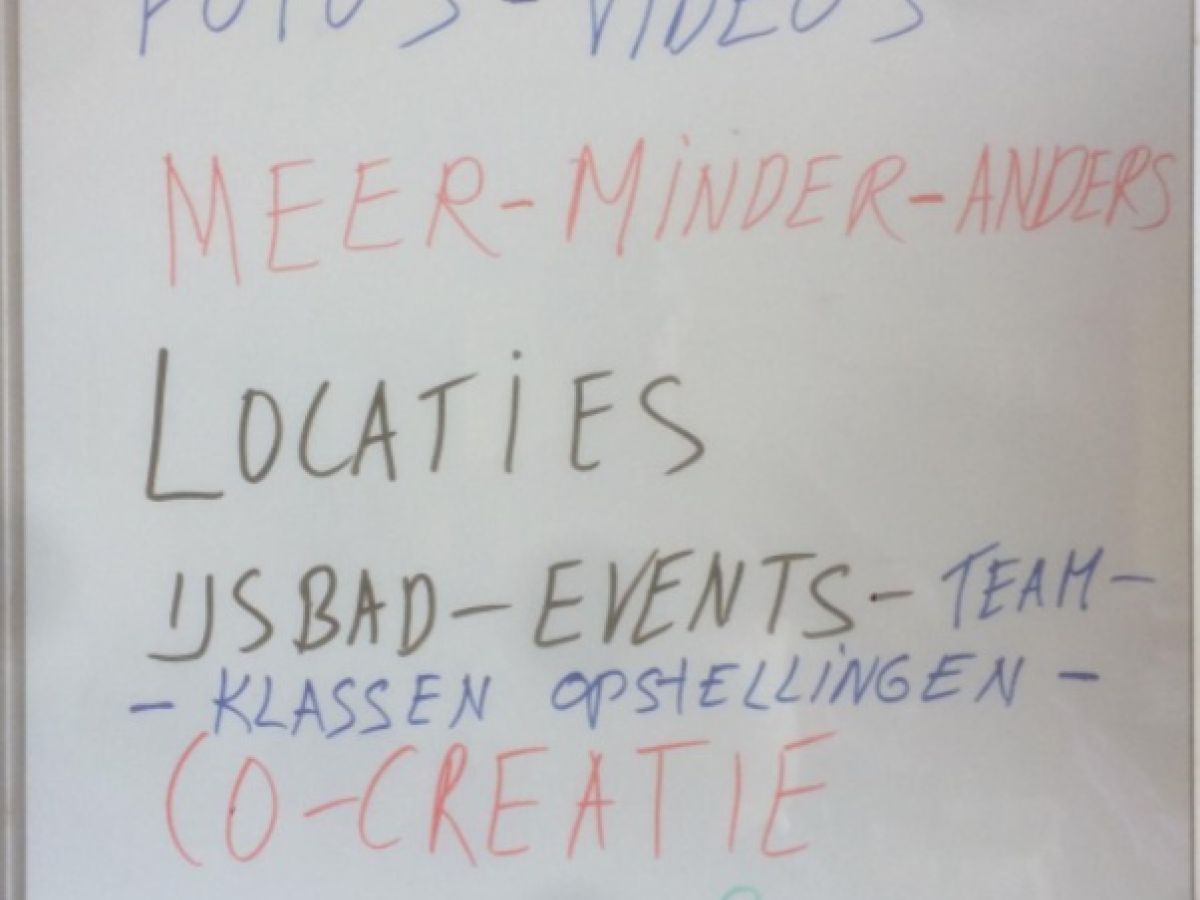 FOTO'S - VIDEO'S
MEER-MINDER-ANDERS
LOCATIES
IJSBAD-EVENTS-TEAM-
- KLASSEN OPSTELLINGEN -
CO-CREATIE